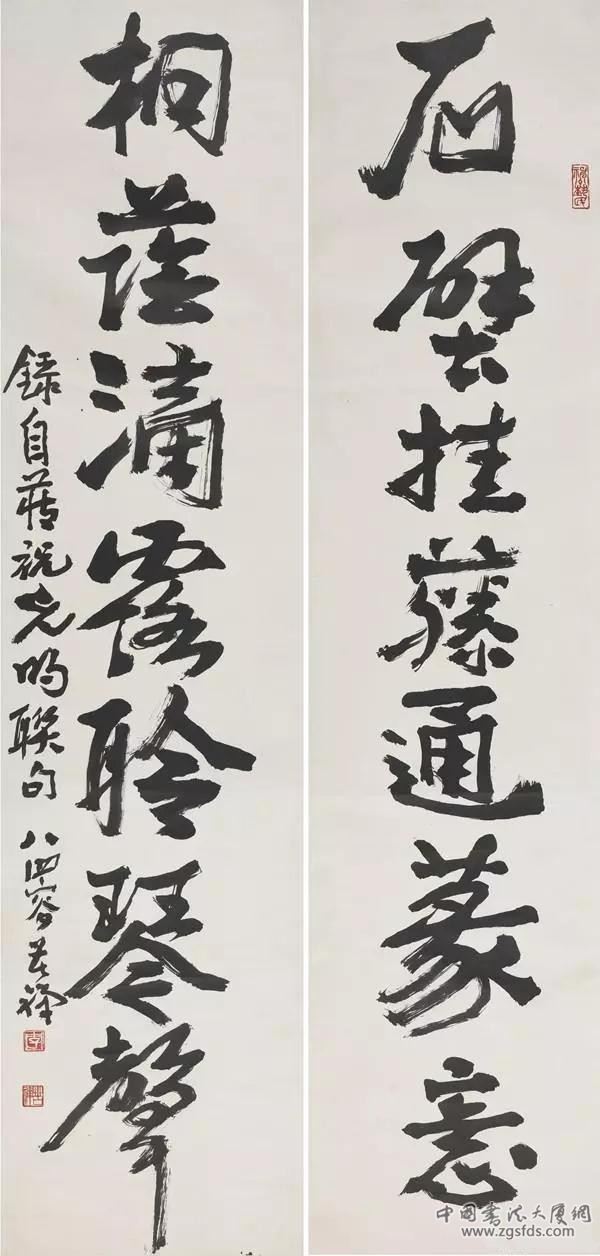 石壁挂藤通篆意
桐蔭滴露聆琴聲
錄自蔣祝聯句 八四叟苦禪
中國書法大廈網
www.zgsfds.com